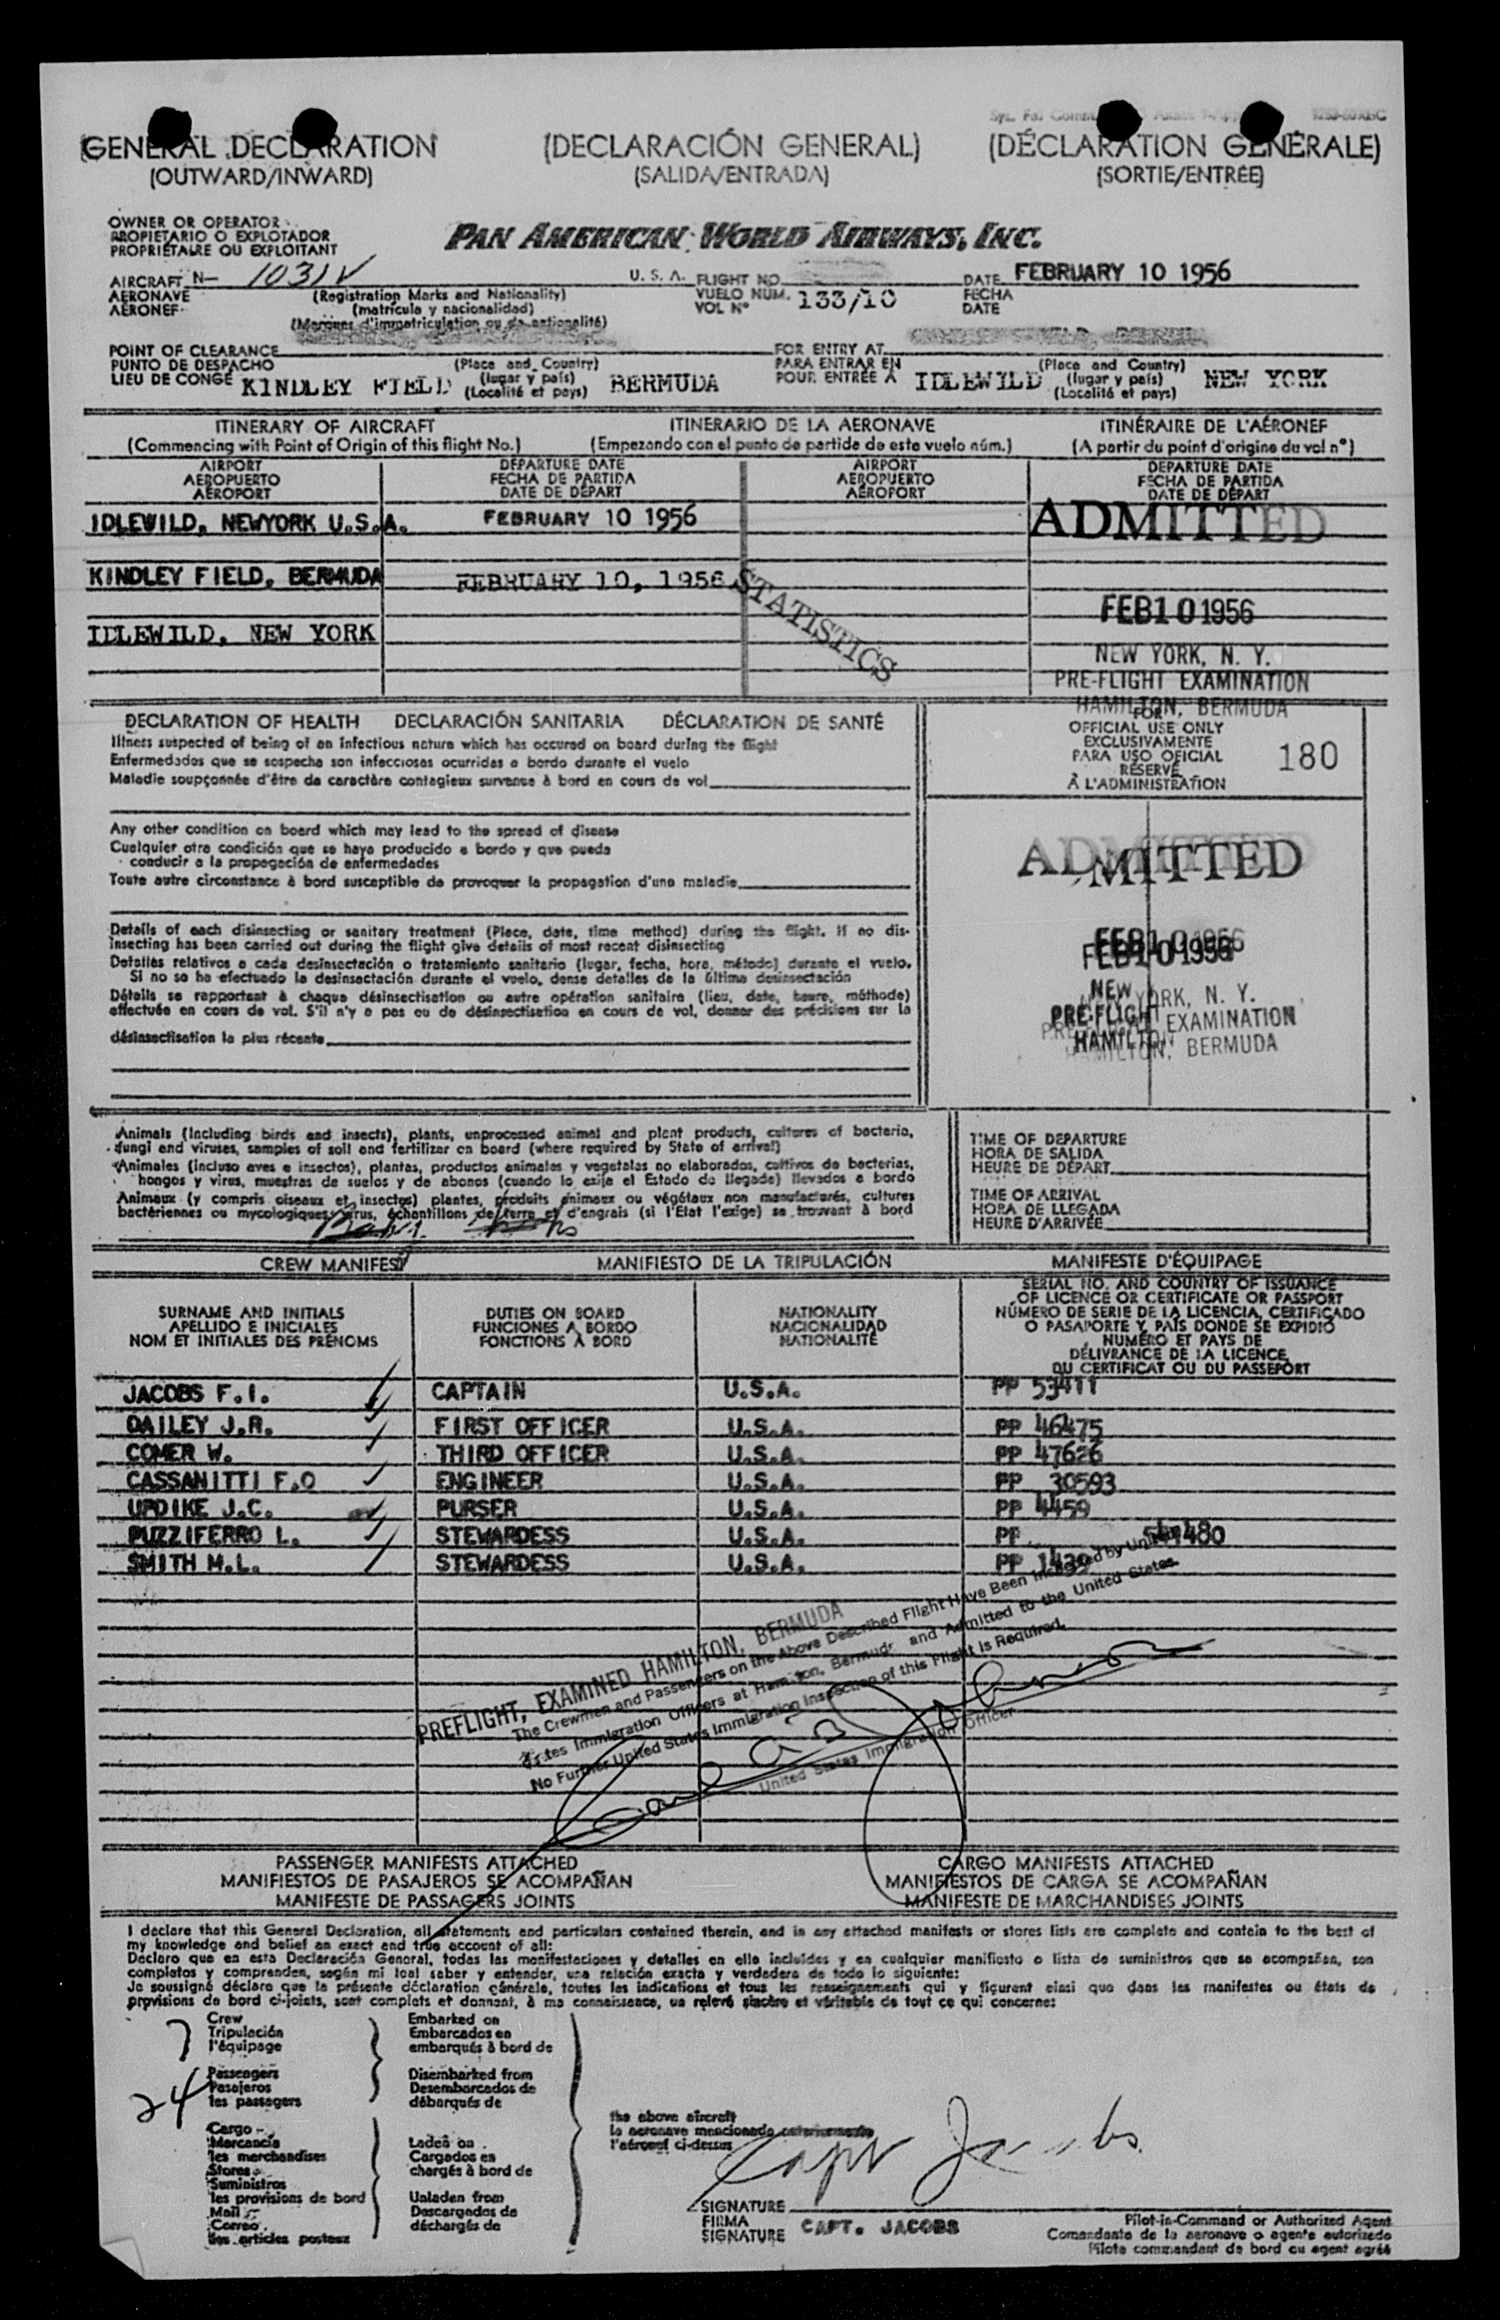 (GENERAL DECLARATION
(OUTWARD/INWARD)
(DECLARACIÓN GENERAL)
(SALIDA/ENTRADA)
(DÉCLARATION GÉNÉRALE)
(SORTIE/ENTRÉE)
OWNER OR OPERATOR
PROPIETARIO O EXPLOTADOR
PROPRIÉTAIRE OU EXPLOITANT
PAN AMERICAN WORLD AIRWAYS, INC.
AIRCRAFT N- 1031V U. S. A.
AERONAVE
AÉRONEF
(Registration Marks and Nationality)
(matrícula y nacionalidad)
(Marques d'immatriculation ou de nationalité)
FLIGHT NO.
VUELO NUM. 133/10
VOL Nº
DATE FEBRUARY 10 1956
FECHA
DATE
POINT OF CLEARANCE
PUNTO DE DESPACHO
LIEU DE CONGÉ KINDLEY FIELD BERMUDA
(Place and Country)
(lugar y país)
(Localité et pays)
FOR ENTRY AT
PARA ENTRAR EN
POUR ENTRÉE À IDLEWILD NEW YORK
(Place and Country)
(lugar y país)
(Localité et pays)
ITINERARY OF AIRCRAFT
(Commencing with Point of Origin of this flight No.)
ITINERARIO DE LA AERONAVE
(Empezando con el punto de partida de este vuelo núm.)
ITINÉRAIRE DE L'AÉRONEF
(A partir du point d'origine du vol nº)
AIRPORT
AEROPUERTO
AÉROPORT
DEPARTURE DATE
FECHA DE PARTIDA
DATE DE DÉPART
AIRPORT
AEROPUERTO
AÉROPORT
DEPARTURE DATE
FECHA DE PARTIDA
DATE DE DÉPART
IDLEWILD, NEWYORK U.S.A. FEBRUARY 10 1956
KINDLEY FIELD, BERMUDA FEBRUARY 10, 1956
IDLEWILD, NEW YORK
STATISTICS
ADMITTED
FEB 10 1956
NEW YORK, N. Y.
PRE-FLIGHT EXAMINATION
HAMILTON, BERMUDA
DECLARATION OF HEALTH DECLARACIÓN SANITARIA DÉCLARATION DE SANTÉ
Illness suspected of being of an infectious nature which has occured on board during the flight
Enfermedades que se sospecha son infecciosas ocurridas a bordo durante el vuelo
Maladie soupçonnée d'être de caractère contagieux survenue à bord en cours de vol
Any other condition on board which may lead to the spread of disease
Cualquier otra condición que se haya producido a bordo y que pueda
conducir a la propagación de enfermedades
Toute autre circonstance à bord susceptible de provoquer la propagation d'une maladie
Details of each disinsecting or sanitary treatment (Place, date, time method) during the flight. If no dis-
insecting has been carried out during the flight give details of most recent disinsecting
Detalles relativos a cada desinsectación o tratamiento sanitario (lugar, fecha, hora, método) durante el vuelo.
Si no se ha efectuado la desinsectación durante el vuelo, dense detalles de la última desinsectación
Détails se rapportant à chaque désinsectisation ou autre opération sanitaire (lieu, date, heure, méthode)
effectuée en cours de vol. S'il n'y a pas eu de désinsectisation en cours de vol, donner des précisions sur la
désinsectisation la plus récente
FOR
OFFICIAL USE ONLY
EXCLUSIVAMENTE
PARA USO OFICIAL
RÉSERVÉ
À L'ADMINISTRATION
180
ADMITTED
FEB 10 1956
NEW YORK, N. Y.
PRE-FLIGHT EXAMINATION
HAMILTON, BERMUDA
Animals (Including birds and insects), plants, unprocessed animal and plant products, cultures of bacteria,
fungi and viruses, samples of soil and fertilizer on board (where required by State of arrival)
Animales (incluso aves e insectos), plantas, productos animales y vegetales no elaborados, cultivos de bacterias,
hongos y virus, muestras de suelos y de abonos (cuando lo exija el Estado de llegada) llevados a bordo
Animaux (y compris oiseaux et insectes) plantes, produits animaux ou végétaux non manufacturés, cultures
bactériennes ou mycologiques, virus, échantillons de terre et d'engrais (si l'État l'exige) se trouvant à bord
TIME OF DEPARTURE
HORA DE SALIDA
HEURE DE DÉPART
TIME OF ARRIVAL
HORA DE LLEGADA
HEURE D'ARRIVÉE
CREW MANIFEST MANIFIESTO DE LA TRIPULACIÓN MANIFESTE D'ÉQUIPAGE
SURNAME AND INITIALS
APELLIDO E INICIALES
NOM ET INITIALES DES PRÉNOMS
DUTIES ON BOARD
FUNCIONES A BORDO
FONCTIONS À BORD
NATIONALITY
NACIONALIDAD
NATIONALITÉ
SERIAL NO. AND COUNTRY OF ISSUANCE
OF LICENCE OR CERTIFICATE OR PASSPORT
NÚMERO DE SERIE DE LA LICENCIA, CERTIFICADO
O PASAPORTE Y PAÍS DONDE SE EXPIDIÓ
NUMÉRO ET PAYS DE
DÉLIVRANCE DE LA LICENCE
DU CERTIFICAT OU DU PASSEPORT
JACOBS F.I. CAPTAIN U.S.A. PP 53411
DAILEY J.R. FIRST OFFICER U.S.A. PP 46475
COMER W. THIRD OFFICER U.S.A. PP 47626
CASSANITTI F.O ENGINEER U.S.A. PP 30593
UPDIKE J.C. PURSER U.S.A. PP 4459
PUZZIFERRO L. STEWARDESS U.S.A. PP
SMITH M.L. STEWARDESS U.S.A. PP
PREFLIGHT, EXAMINED HAMILTON, BERMUDA
The Crewmen and Passengers on the Above Described Flight Have Been Inspected by United
States Immigration Officers at Hamilton, Bermuda and Admitted to the United States.
No Further United States Immigration Inspection of this Flight is Required.
United States Immigration Officer
PASSENGER MANIFESTS ATTACHED
MANIFIESTOS DE PASAJEROS SE ACOMPAÑAN
MANIFESTE DE PASSAGERS JOINTS
CARGO MANIFESTS ATTACHED
MANIFIESTOS DE CARGA SE ACOMPAÑAN
MANIFESTE DE MARCHANDISES JOINTS
I declare that this General Declaration, all statements and particulars contained therein, and in any attached manifests or stores lists are complete and contain to the best of
my knowledge and belief an exact and true account of all:
Declaro que en esta Declaración General, todas las manifestaciones y detalles en ella incluidos y en cualquier manifiesto o lista de suministros que se acompañan, son
completos y comprenden, según mi leal saber y entender, una relación exacta y verdadera de todo lo siguiente:
Je soussigné déclare que la présente déclaration générale, toutes les indications et tous les renseignements qui y figurent ainsi que dans les manifestes ou états de
provisions de bord ci-joints, sont complets et donnent, à ma connaissance, un relevé sincère et véritable de tout ce qui concerne:
7
Crew
Tripulación
l'équipage
24
Passengers
Pasajeros
les passagers
Embarked on
Embarcados en
embarqués à bord de
Disembarked from
Desembarcados de
débarqués de
Cargo
Mercancía
les merchandises
Stores
Suministros
les provisions de bord
Mail
Correo
les articles postaux
Laden on
Cargados en
chargés à bord de
Unladen from
Descargados de
déchargés de
the above aircraft
la aeronave mencionada anteriormente
l'aéronef ci-dessus
Capt Jacobs
SIGNATURE
FIRMA
SIGNATURE
CAPT. JACOBS
Pilot-in-Command or Authorized Agent
Comandante de la aeronave o agente autorizado
Pilote commandant de bord ou agent agréé